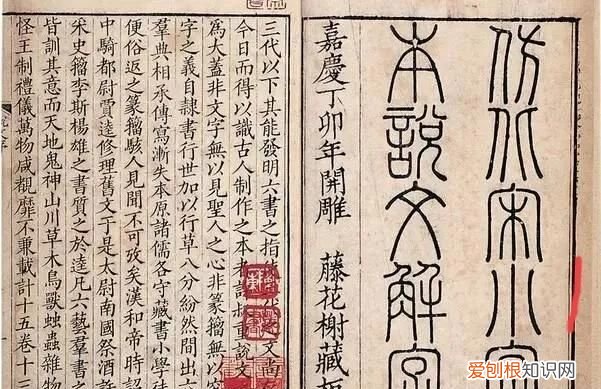 仿北宋小字
本說文解字
嘉慶丁卯年開雕 藤花榭藏板
三代以下其能發明六書之指使之文尚存
今日而得以識古人制作之本者許叔重說文
為大蓋非文字無以見聖人之心非篆籀無以
字之義自隸書行世加以行草八分紛然間出
羣典相承傳寫漸失本原諸儒各守藏書小學徒
便俗返之篆籀駭人見聞不可攷矣漢和帝時詔
中騎都尉賈逵修理舊文于是太尉南閣祭酒許
采史籀李斯楊雄之書質之於逵凡六藝羣書之
皆訓其意而天地鬼神山川草木鳥獸䖵蟲雜物
怪王制禮儀萬物咸覩靡不兼載計十五卷十三
爱刨根知识网